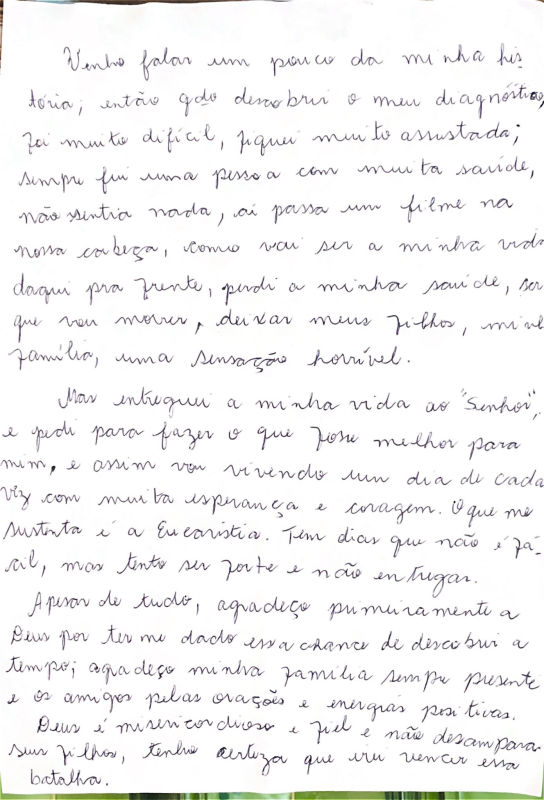 Venho falar um pouco da minha his-
tória; então qdo descobri o meu diagnóstico,
foi muito difícil, fiquei muito assustada;
sempre fui uma pessoa com muita saúde,
não sentia nada, aí passa um filme na
nossa cabeça, como vai ser a minha vida
daqui pra frente, perdi a minha saúde, ser
que vou morrer, deixar meus filhos, minh
família, uma sensação horrível.
Mas entreguei a minha vida ao "Senhor",
e pedi para fazer o que fosse melhor para
mim, e assim vou vivendo um dia de cada
vez com muita esperança e coragem. O que me
sustenta é a Eucaristia. Tem dias que não é fá-
cil, mas tento ser forte e não entregar.
Apesar de tudo, agradeço primeiramente a
Deus por ter me dado essa chance de descobrir a
tempo; agradeço minha família sempre presente
e os amigos pelas orações e energias positivas.
Deus é misericordioso e fiel e não desampara
seus filhos, tenho certeza que irei vencer essa
batalha.